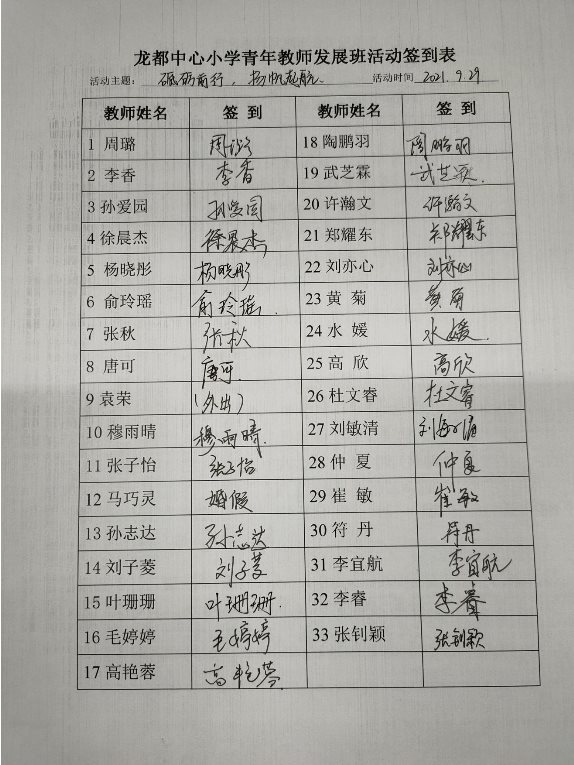 龙都中心小学青年教师发展班活动签到表
活动主题: 砥砺前行,扬帆起航. 活动时间 2021.9.29
教师姓名 签 到 教师姓名 签 到
1 周璐 周璐 18 陶鹏羽 陶鹏羽
2 李香 李香 19 武芝霖 武芝霖.
3 孙爱园 孙爱园 20 许瀚文 许瀚文
4 徐晨杰 徐晨杰 21 郑耀东 郑耀东
5 杨晓彤 杨晓彤 22 刘亦心 刘亦心
6 俞玲瑶 俞玲瑶. 23 黄 菊 黄菊
7 张秋 张秋 24 水 媛 水媛.
8 唐可 唐可. 25 高 欣 高欣
9 袁荣 (外出) 26 杜文睿 杜文睿
10 穆雨晴 穆雨晴. 27 刘敏清 刘敏清
11 张子怡 张子怡 28 仲 夏 仲夏
12 马巧灵 婚假 29 崔 敏 崔敏
13 孙志达 孙志达 30 符 丹 符丹
14 刘子菱 刘子菱 31 李宜航 李宜航
15 叶珊珊 叶珊珊. 32 李睿 李睿
16 毛婷婷 毛婷婷 33 张钊颖 张钊颖
17 高艳蓉 高艳蓉.